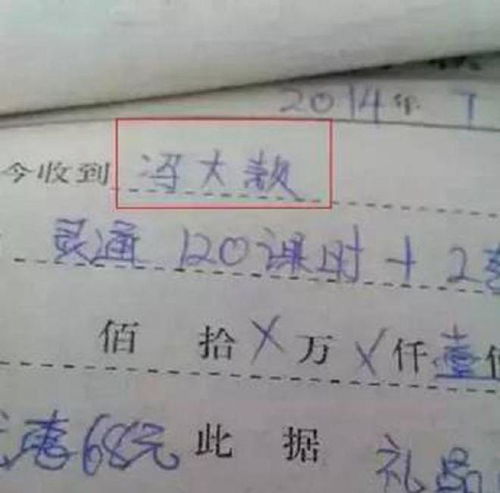 2014年 7
今收到 冯大款
灵通 120课时 + 2套
佰 拾 X 万 X 仟 壹
惠68元 此 据 礼品